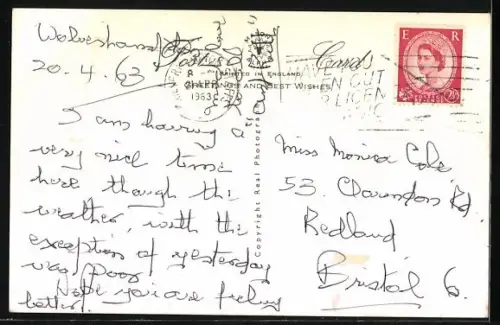 Wolverhampton
20.4.63
I am having a
very nice time
here though the
weather, with the
exception of yesterday
was poor
Hope you are feeling
better.
Cards
PRINTED IN ENGLAND
GREETINGS AND BEST WISHES
1963
HAVE
LICEN
E R
Copyright Real Photograph
Miss Monica Cole
53, Clarendon Rd.
Redland
Bristol 6.